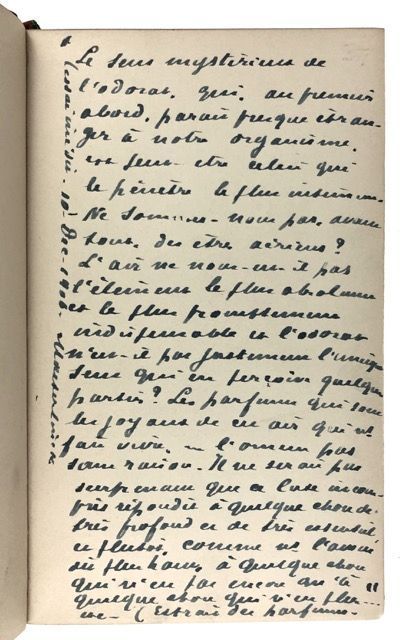 Le sens mystérieux de
l'odorat, qui, au premier
abord, paraît presque étran-
ger à notre organisme,
est peut-être celui qui
le pénètre le plus intimem.
Ne sommes-nous pas, avant
tout, des êtres aériens?
L'air ne nous est-il pas
l'élément le plus absolument
et le plus promptement
indispensable et l'odorat
n'est-il pas justement l'unique
sens qui en perçoive quelques
parties? Les parfums qui sont
les joyaux de cet air qui ns
fait vivre, ne l'ornent pas
sans raison. Il ne serait pas
surprenant que ce luxe incom-
pris répondît à quelque chose de
très profond et de très essentiel
et plutôt, comme ns l'avons
vu plus haut, à quelque chose
qui n'est pas encore qu'à
quelque chose qui n'est plus
(Extrait des parfums.
10 Dec. 1906. Maeterlinck